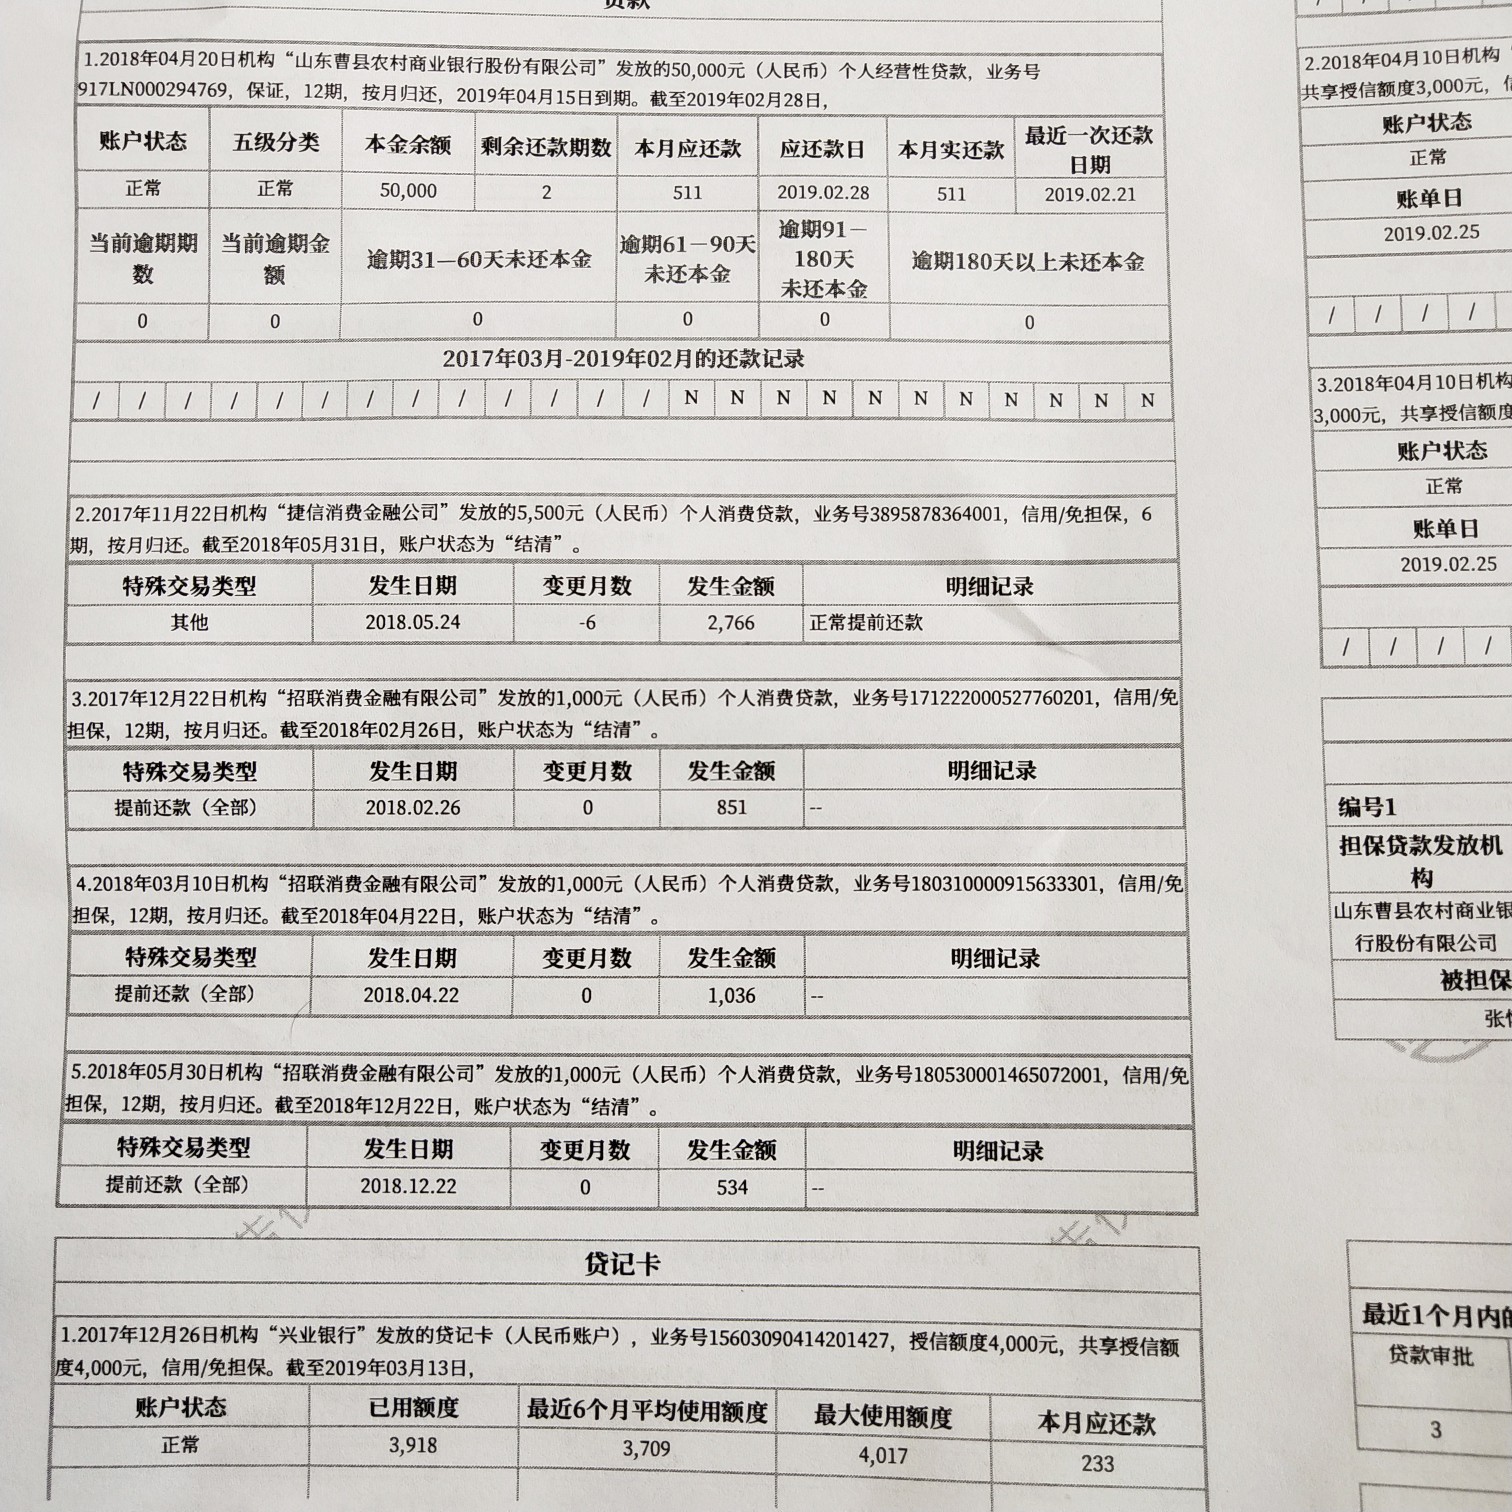 贷款
1.2018年04月20日机构“山东曹县农村商业银行股份有限公司”发放的50,000元（人民币）个人经营性贷款，业务号
917LN000294769，保证，12期，按月归还，2019年04月15日到期。截至2019年02月28日，
账户状态 五级分类 本金余额 剩余还款期数 本月应还款 应还款日 本月实还款 最近一次还款
日期
正常 正常 50,000 2 511 2019.02.28 511 2019.02.21
当前逾期期
数 当前逾期金
额 逾期31－60天未还本金 逾期61－90天
未还本金 逾期91－
180天
未还本金 逾期180天以上未还本金
0 0 0 0 0 0
2017年03月-2019年02月的还款记录
/ / / / / / / / / / / / / N N N N N N N N N N N
2.2017年11月22日机构“捷信消费金融公司”发放的5,500元（人民币）个人消费贷款，业务号3895878364001，信用/免担保，6
期，按月归还。截至2018年05月31日，账户状态为“结清”。
特殊交易类型 发生日期 变更月数 发生金额 明细记录
其他 2018.05.24 -6 2,766 正常提前还款
3.2017年12月22日机构“招联消费金融有限公司”发放的1,000元（人民币）个人消费贷款，业务号171222000527760201，信用/免
担保，12期，按月归还。截至2018年02月26日，账户状态为“结清”。
特殊交易类型 发生日期 变更月数 发生金额 明细记录
提前还款（全部） 2018.02.26 0 851 --
4.2018年03月10日机构“招联消费金融有限公司”发放的1,000元（人民币）个人消费贷款，业务号180310000915633301，信用/免
担保，12期，按月归还。截至2018年04月22日，账户状态为“结清”。
特殊交易类型 发生日期 变更月数 发生金额 明细记录
提前还款（全部） 2018.04.22 0 1,036 --
5.2018年05月30日机构“招联消费金融有限公司”发放的1,000元（人民币）个人消费贷款，业务号180530001465072001，信用/免
担保，12期，按月归还。截至2018年12月22日，账户状态为“结清”。
特殊交易类型 发生日期 变更月数 发生金额 明细记录
提前还款（全部） 2018.12.22 0 534 --
贷记卡
1.2017年12月26日机构“兴业银行”发放的贷记卡（人民币账户），业务号15603090414201427，授信额度4,000元，共享授信额
度4,000元，信用/免担保。截至2019年03月13日，
账户状态 已用额度 最近6个月平均使用额度 最大使用额度 本月应还款
正常 3,918 3,709 4,017 233
2.2018年04月10日机构
共享授信额度3,000元，
账户状态
正常
账单日
2019.02.25
/ / / /
3.2018年04月10日机构
3,000元，共享授信额度
账户状态
正常
账单日
2019.02.25
/ / / /
编号1
担保贷款发放机
构
山东曹县农村商业银
行股份有限公司
被担保
张
最近1个月内的
贷款审批
3